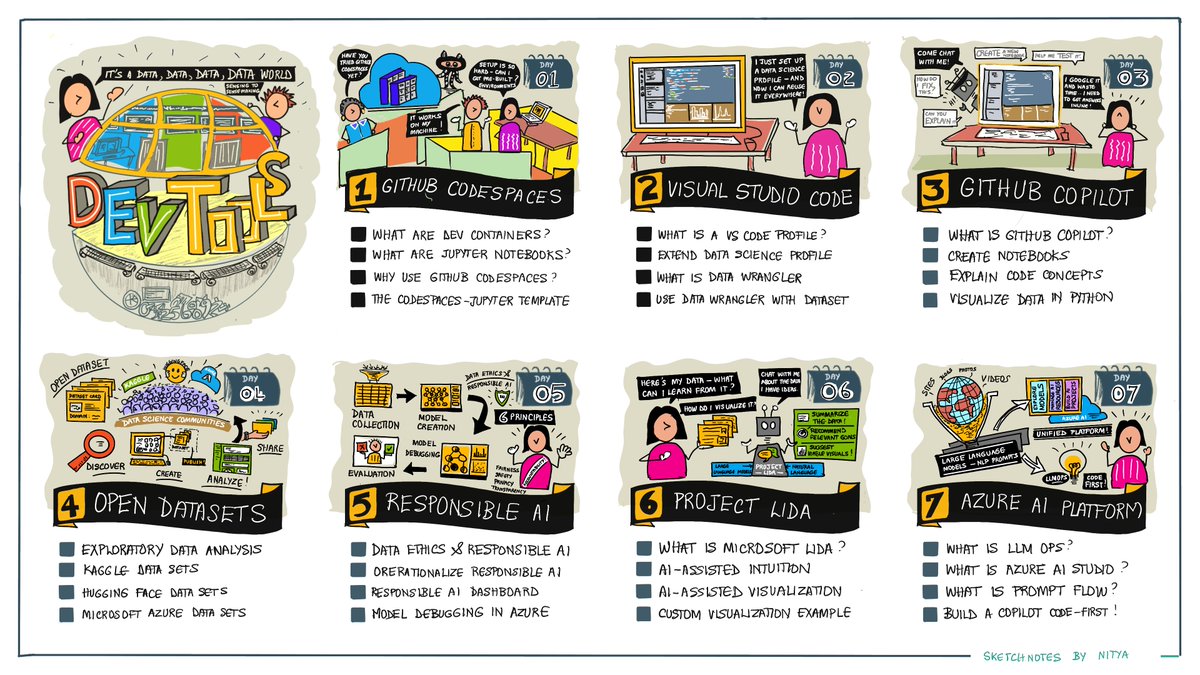 IT'S A DATA, DATA, DATA, DATA WORLD
SENSING TO
SENSE MAKING
DEVTOOLS
HAVE YOU
TRIED GITHUB
CODESPACES
YET?
SETUP IS SO
HARD - CAN I
GET PRE-BUILT
ENVIRONMENTS?
IT WORKS
ON MY
MACHINE!
DAY
01
1 GITHUB CODESPACES
WHAT ARE DEV CONTAINERS?
WHAT ARE JUPYTER NOTEBOOKS?
WHY USE GITHUB CODESPACES?
THE CODESPACES-JUPYTER TEMPLATE
I JUST SET UP
A DATA SCIENCE
PROFILE - AND
NOW I CAN REUSE
IT EVERYWHERE!
DAY
02
2 VISUAL STUDIO CODE
WHAT IS A VS CODE PROFILE?
EXTEND DATA SCIENCE PROFILE
WHAT IS DATA WRANGLER
USE DATA WRANGLER WITH DATASET
COME CHAT
WITH ME!
CREATE A NEW
NOTEBOOK
HELP ME TEST IT!
HOW DO I
FIX
THIS?
CAN YOU
EXPLAIN
I GOOGLE IT
AND WASTE
TIME - I NEED
TO GET ANSWERS
INLINE!
DAY
03
3 GITHUB COPILOT
WHAT IS GITHUB COPILOT?
CREATE NOTEBOOKS
EXPLAIN CODE CONCEPTS
VISUALIZE DATA IN PYTHON
OPEN DATASET
DATASET CARD
DOMAIN:
KAGGLE
DATA SCIENCE COMMUNITIES
DISCOVER
CREATE
PUBLISH
ANALYZE!
SHARE
DAY
04
4 OPEN DATASETS
EXPLORATORY DATA ANALYSIS
KAGGLE DATA SETS
HUGGING FACE DATA SETS
MICROSOFT AZURE DATA SETS
DATA
COLLECTION
MODEL
CREATION
DATA ETHICS &
RESPONSIBLE AI
6 PRINCIPLES
MODEL
DEBUGGING
EVALUATION
FAIRNESS
SAFETY
PRIVACY
TRANSPARENCY
DAY
05
5 RESPONSIBLE AI
DATA ETHICS & RESPONSIBLE AI
ORERATIONALIZE RESPONSIBLE AI
RESPONSIBLE AI DASHBOARD
MODEL DEBUGGING IN AZURE
HERE'S MY DATA - WHAT
CAN I LEARN FROM IT?
HOW DO I VISUALIZE IT?
CHAT WITH ME
ABOUT THE DATA
I HAVE IDEAS
SUMMARIZE
THE DATA!
RECOMMEND
RELEVANT GOALS
SUGGEST
USEFUL VISUALS!
LARGE
LANGUAGE MODELS
PROJECT
LIDA
NATURAL
LANGUAGE
DAY
06
6 PROJECT LIDA
WHAT IS MICROSOFT LIDA?
AI-ASSISTED INTUITION
AI-ASSISTED VISUALIZATION
CUSTOM VISUALIZATION EXAMPLE
SITES
PHOTOS
VIDEOS
EXPLORE
MODELS
AZURE AI
UNIFIED PLATFORM!
LARGE LANGUAGE
MODELS - NLP PROMPTS!
LLMOPS
CODE
FIRST!
DAY
07
7 AZURE AI PLATFORM
WHAT IS LLM OPS?
WHAT IS AZURE AI STUDIO?
WHAT IS PROMPT FLOW?
BUILD A COPILOT CODE-FIRST!
SKETCHNOTES BY NITYA